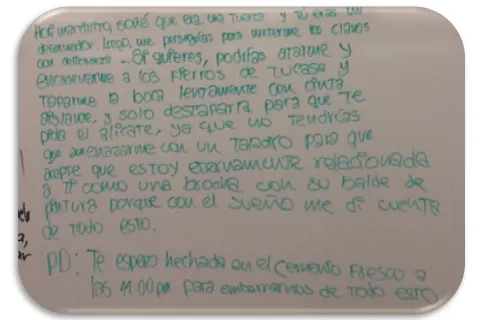 Hoy soñé que era una tuerca y tú eras un
desarmador. Luego, me perseguías para meterme los clavos
con .... Si quieres, podrías atarme y
encadenarme a los fierros de tu casa y
taparme la boca lentamente con cinta
aislante, y solo destaparla para que te
pida el alicate, ya que no tendrías
que amenazarme con un taladro para que
acepte que estoy eternamente relacionada
a ti como una brocha con su balde de
pintura porque con el sueño me di cuenta
de todo esto.
PD: Te espero hechada en el cemento fresco a
las 11:00pm para embarrarnos de todo esto